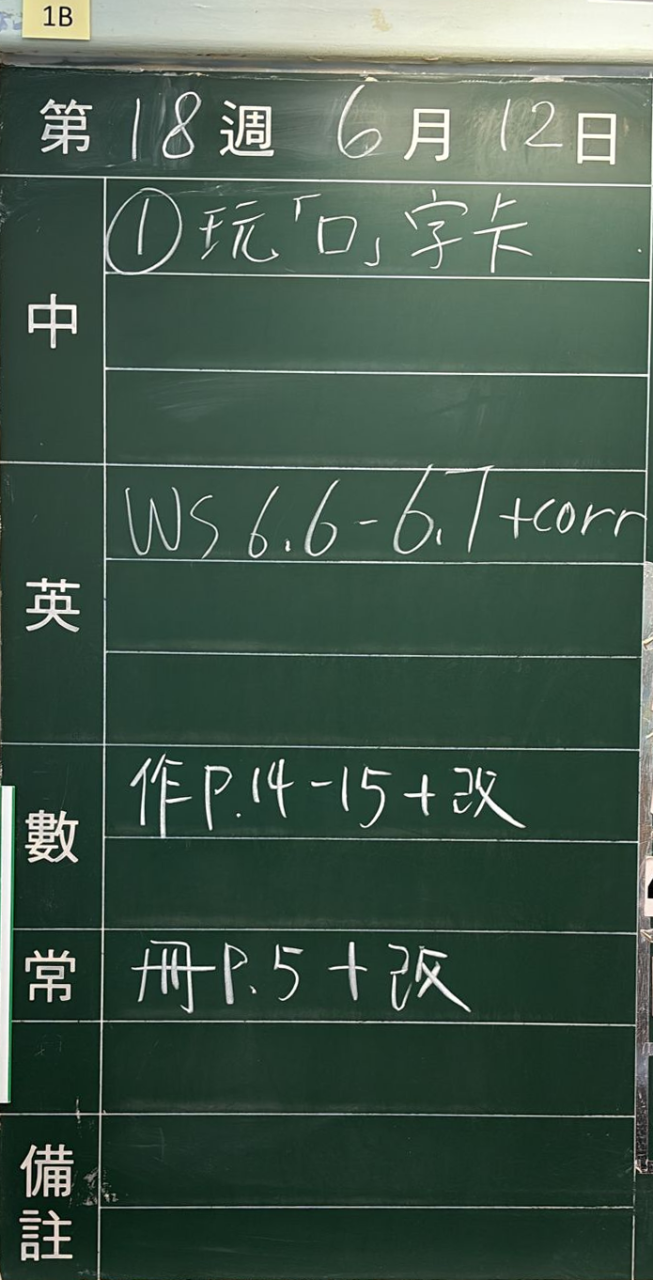 1B
第 18 週 6 月 12 日
中
① 玩「口」字卡
英
WS 6.6 - 6.7 + corr
數
作 P.14 - 15 + 改
常
冊 P.5 + 改
備註